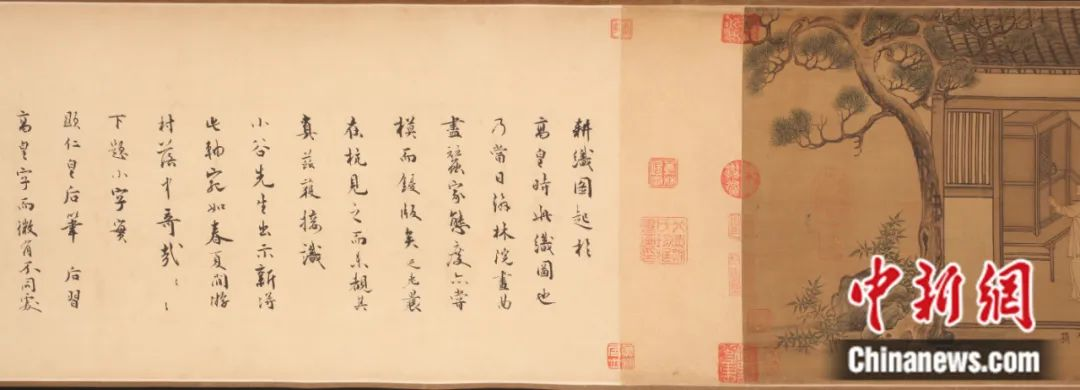 耕織圖起於
髙皇時此織圖也
乃當日翰林院畫曲
盡蠶家態度亦嘗
模而鋟版矣之光曩
在杭見之而未覩其
真茲獲接識
小谷先生出示新得
此軸宛如春夏間游
村落中奇哉〻〻
下題小字實
顯仁皇后筆 后習
髙皇字而微有不同處
中新網
Chinanews.com